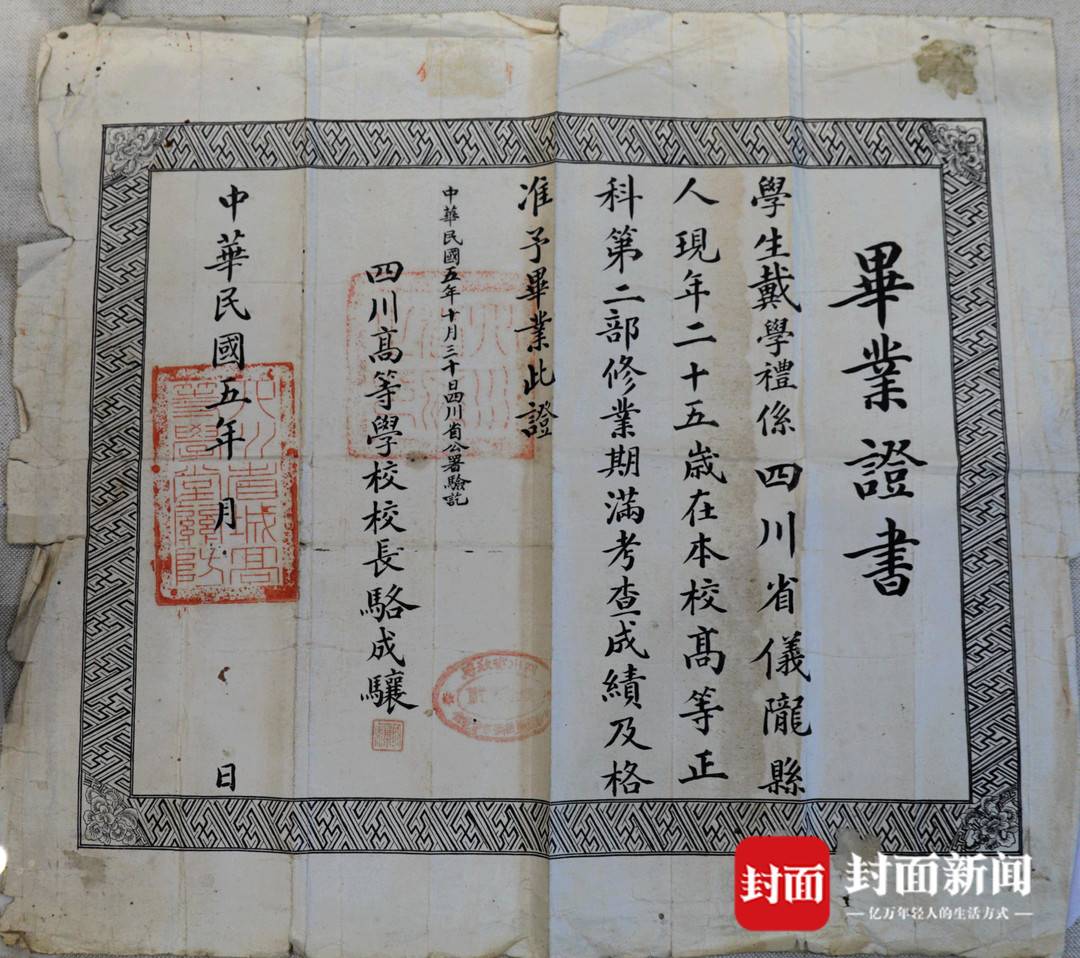 畢業證書
學生戴學禮係四川省儀隴縣
人現年二十五歲在本校高等正
科第二部修業期滿考查成績及格
准予畢業此證
中華民國五年十月三十日四川省公署驗訖
四川高等學校校長駱成驤
中華民國五年 月 日
封面
封面新闻
亿万年轻人的生活方式